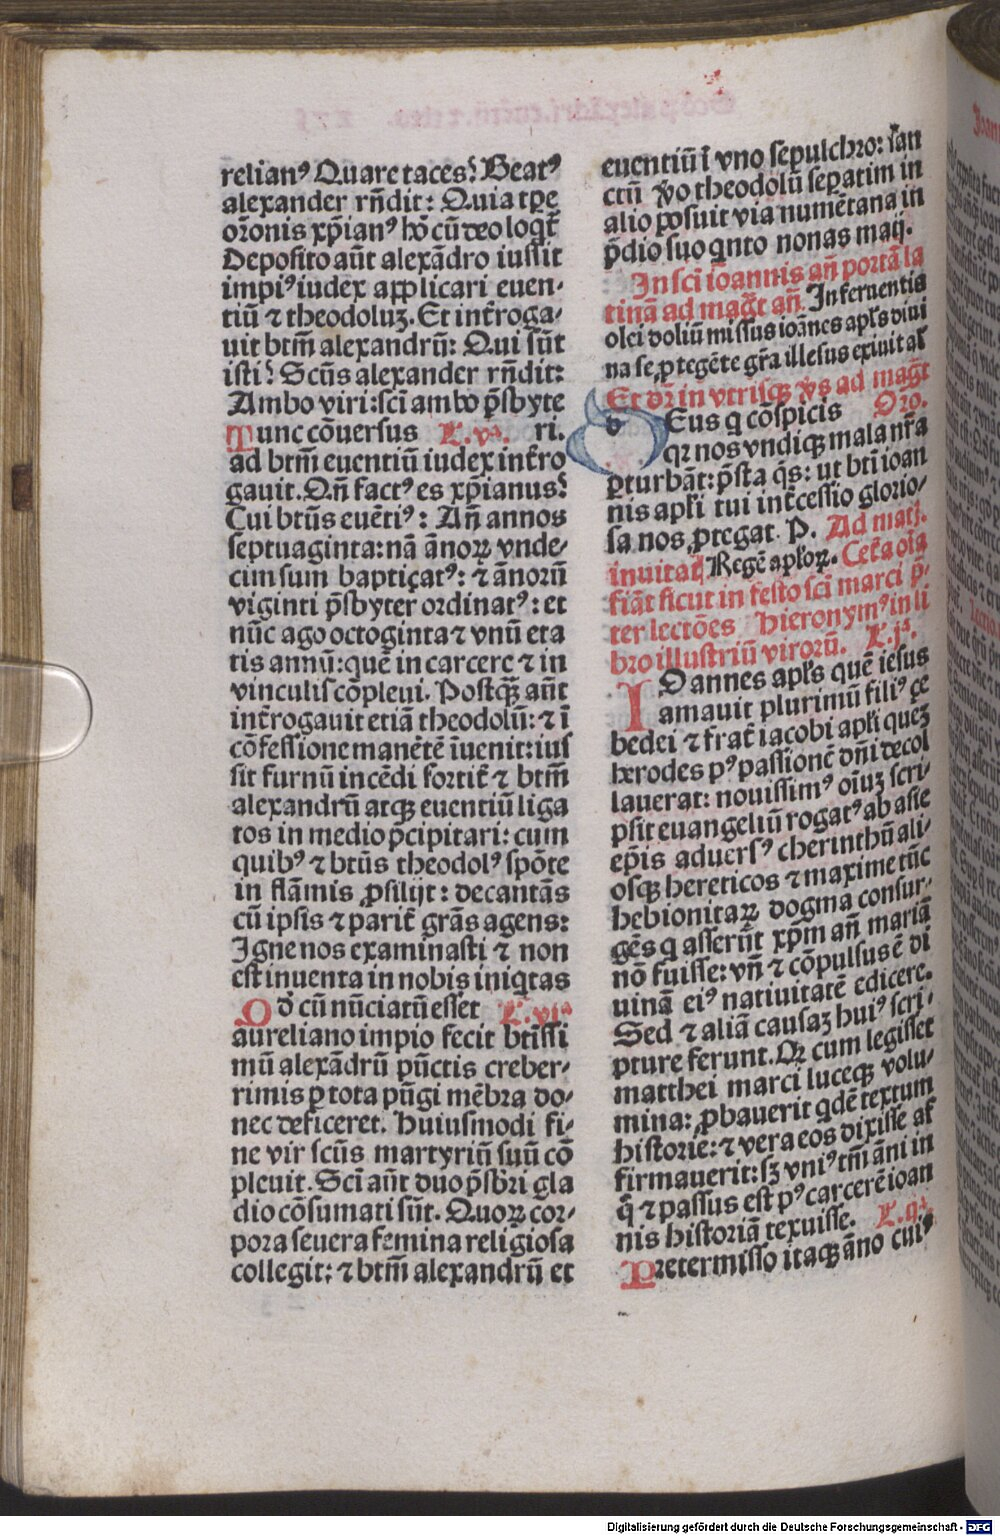 relianꝰ Quare taces? Beatꝰ
alexander rn̄dit: Quia tꝑe
or̄onis xp̄ianꝰ hō cū deo loqt̄
Deposito aūt alexādro iussit
impiꝰ iudex applicari euen-
tiū ⁊ theodoluꝫ. Et int̄roga-
uit btm̄ alexandrū: Qui sūt
isti? Scūs alexander rn̄dit:
Ambo viri: sci ambo p̄sbyte
Tunc cōuersus L.vᵃ. ri.
ad btm̄ euentiū iudex int̄ro
gauit. Qn̄ factꝰ es xp̄ianus?
Cui btūs euētiꝰ: An̄ annos
septuaginta: nā ānoꝝ vnde-
cim sum baptiçatꝰ: ⁊ ānorū
viginti p̄sbyter ordinatꝰ: et
nūc ago octoginta ⁊ vnū eta
tis annū: quē in carcere ⁊ in
vinculis cōpleui. Postqꝫ aūt
int̄rogauit etiā theodolū: ⁊ ī
cōfessione manētē īuenit: ius
sit furnū incēdi fortit̄ ⁊ btm̄
alexandrū atqꝫ euentiū liga
tos in medio p̄cipitari: cum
quibꝰ ⁊ btūs theodolꝰ spōte
in flāmis ꝓsilijt: decantās
cū ipsis ⁊ parit̄ grās agens:
Igne nos examinasti ⁊ non
est inuenta in nobis iniqtas
Qd̄ cū nūciatū esset L.viᵃ
aureliano impio fecit btissi
mū alexādrū pūctis creber-
rimis ꝑ tota pūgi mēbra do-
nec deficeret. Huiusmodi fi-
ne vir scūs martyriū suū cō
pleuit. Sci aūt duo p̄sbri gla
dio cōsumati sūt. Quoꝝ cor-
pora seuera femina religiosa
collegit: ⁊ btm̄ alexandrū et
euentiū ī vno sepulchro: san
ctū ꝟo theodolū seꝑatim in
alio posuit via numētana in
p̄dio suo qnto nonas maij.
In sci ioannis an̄ portā la
tinā ad magt̄ an̄. In feruentis
olei doliū missus ioānes apls diui
na se ꝓtegēte gr̄a illesus exiuit al̄
Et dr̄ in vtrisqꝫ ꝟs ad magt̄
dEus q cōspicis Oro.
qꝛ nos vndiqꝫ mala nr̄a
ꝑturbāt: p̄sta qs̄: ut bti ioan
nis apli tui int̄cessio glorio-
sa nos ꝓtegat. P. Ad matj.
inuitat̄ Regē aploꝝ. Cet̄a oīa
fiāt sicut in festo sci marci p̄-
ter lectōes Hieronymꝰ in li
bro illustriū virorū. L.jᵃ.
IOannes apls quē iesus
amauit plurimū filiꝰ çe
bedei ⁊ frat̄ iacobi apli queꝫ
herodes pꝰ passionē dn̄i decol
lauerat: nouissimꝰ oīuꝫ scri-
psit euangeliū rogatꝰ ab asie
ep̄is aduersꝰ cherinthū ali-
osqꝫ hereticos ⁊ maxime tūc
hebionitaꝝ dogma consur-
gēs q asserūt xp̄m an̄ mariā
nō fuisse: vn̄ ⁊ cōpulsus ē di
uinā eiꝰ natiuitatē edicere.
Sed ⁊ aliā causaꝫ huiꝰ scri-
pture ferunt. Qꝛ cum legisset
matthei marci luceqꝫ volu-
mina: ꝓbauerit qdē textum
historie: ⁊ vera eos dixisse af
firmauerit: sꝫ vniꝰ tm̄ āni in
q̄ ⁊ passus est pꝰ carcerē ioan
nis historiā texuisse. L.ijᵃ.
Pretermisso itaqꝫ āno cuiꝰ
Digitalisierung gefördert durch die Deutsche Forschungsgemeinschaft - DFG